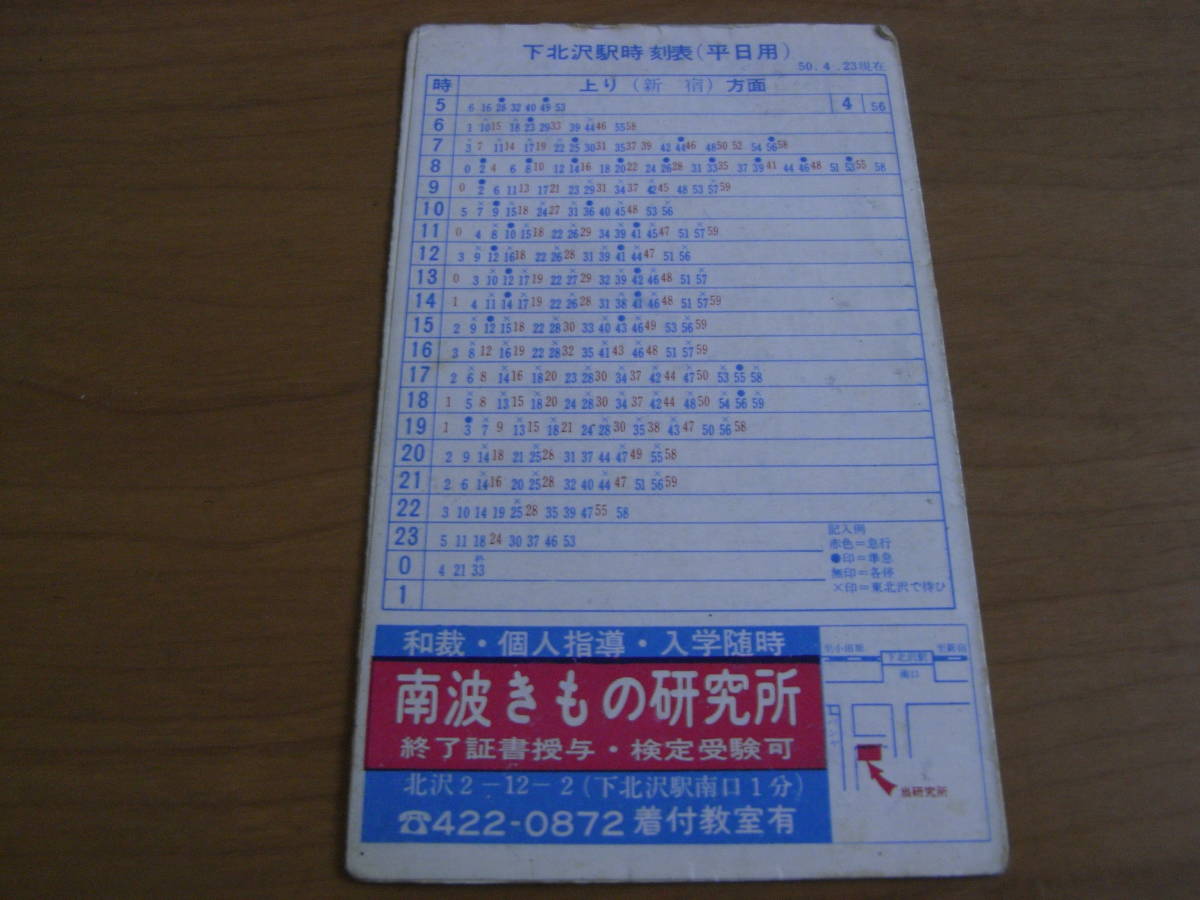 下北沢駅時刻表(平日用)
50.4.23現在
時 上り(新宿)方面
5 6 16 28 32 40 49 53 4 56
6 1 10 15 18 23 29 33 39 44 46 55 58
7 3 7 11 14 17 19 22 25 30 31 35 37 39 42 44 46 48 50 52 54 56 58
8 0 2 4 6 8 10 12 14 16 18 20 22 24 26 28 31 33 35 37 39 41 44 46 48 51 53 55 58
9 0 2 6 11 13 17 21 23 29 31 34 37 42 45 48 53 57 59
10 5 7 9 15 18 24 27 31 36 40 45 48 53 56
11 0 4 8 10 15 18 22 26 29 34 39 41 45 47 51 57 59
12 3 9 12 16 18 22 26 28 31 39 41 44 47 51 56
13 0 3 10 12 17 19 22 27 29 32 39 42 46 48 51 57
14 1 4 11 14 17 19 22 26 28 31 38 41 46 48 51 57 59
15 2 9 12 15 18 22 28 30 33 40 43 46 49 53 56 59
16 3 8 12 16 19 22 28 32 35 41 43 46 48 51 57 59
17 2 6 8 14 16 18 20 23 28 30 34 37 42 44 47 50 53 55 58
18 1 5 8 13 15 18 20 24 28 30 34 37 42 44 48 50 54 56 59
19 1 3 7 9 13 15 18 21 24 28 30 35 38 43 47 50 56 58
20 2 9 14 18 21 25 28 31 37 44 47 49 55 58
21 2 6 14 16 20 25 28 32 40 44 47 51 56 59
22 3 10 14 19 25 28 35 39 47 55 58
23 5 11 18 24 30 37 46 53
終
0 4 21 33
1
記入例
赤色=急行
●印=準急
無印=各停
×印=東北沢で待ひ
和裁・個人指導・入学随時
南波きもの研究所
終了証書授与・検定受験可
北沢2-12-2(下北沢駅南口1分)
☎422-0872 着付教室有
至小田原 下北沢駅 至新宿
南口
当研究所